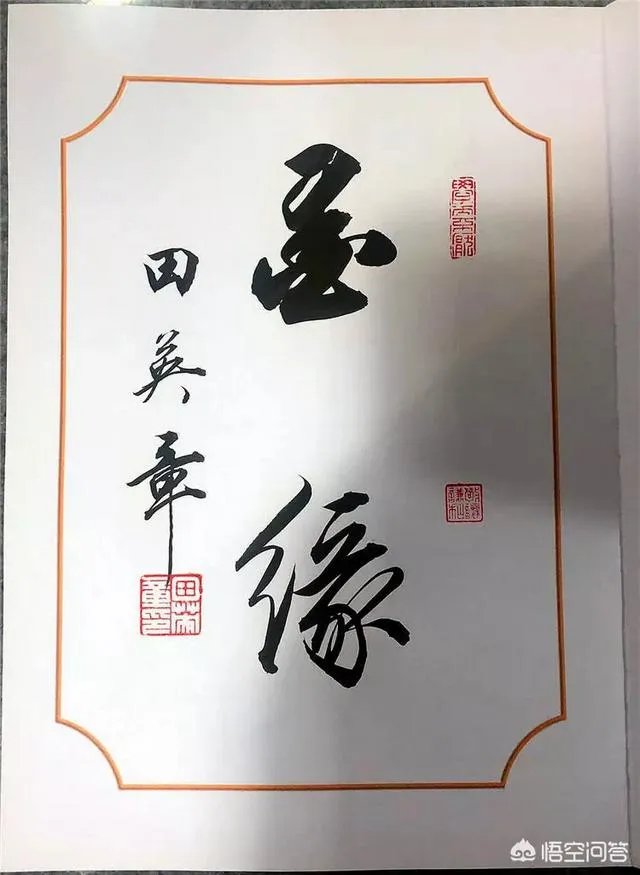 墨缘
田英章
田英章印
悟空问答